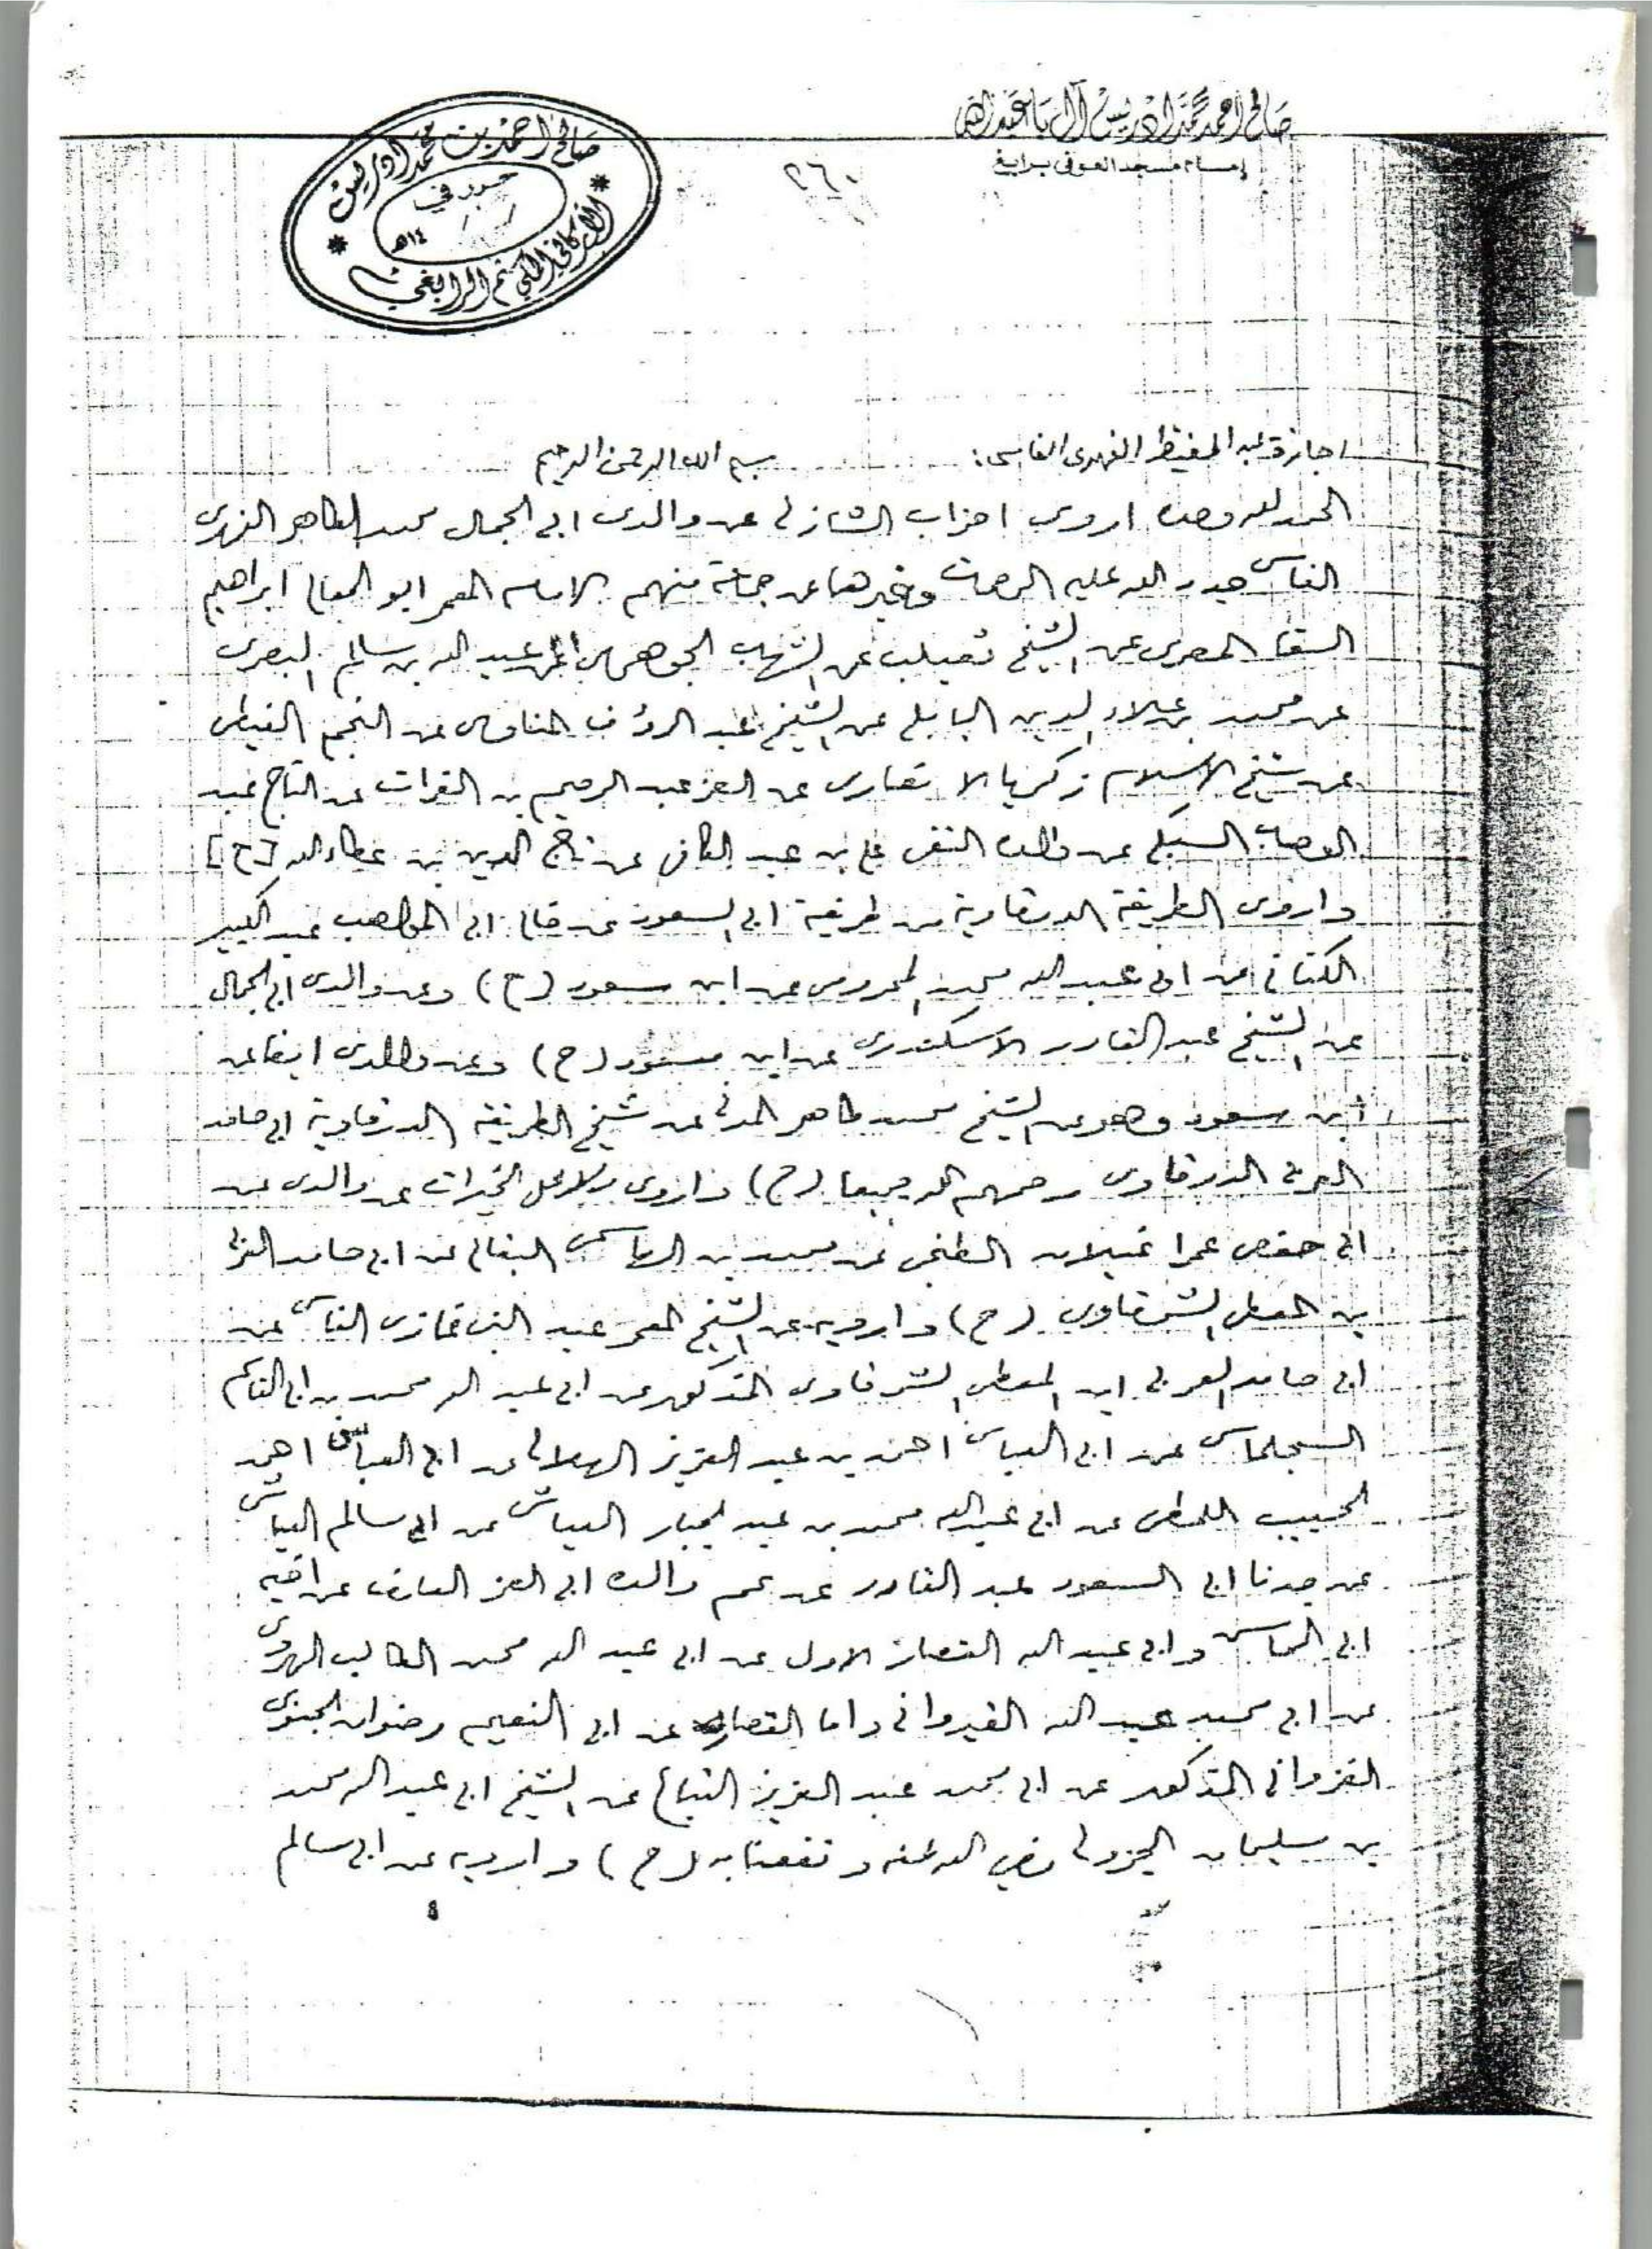 صالح احمد محمد ادريس آل باعبدالله
إمام مسجد العوفي برابغ
٢٦٠
صالح احمد بن محمد ادريس
حرر في
/ / ١٤هـ
المكي ثم الرابغي
اجازة عبد الحفيظ الفهرى الفاسى:
بسم الله الرحمن الرحيم
الحمد لله وحده اروى احزاب الشازلى عن والدى ابى الجمال محمد الطاهر الفهرى
الفاسى جدد الله عليه الرحمات وغيرها عن جماعة منهم الامام المعمر ابو المعالى ابراهيم
السقا المصرى عن الشيخ ثعيلب عن الشهاب الجوهرى عن عبد الله بن سالم البصرى
عن محمد بن علاء الدين البابلى عن الشيخ عبد الرؤف المناوى عن النجم الغيطى
عن شيخ الاسلام زكريا الانصارى عن العز عبد الرحيم بن الفرات عن التاج عبد
الوهاب السبكى عن والده التقى على بن عبد الكافى عن تاج الدين بن عطاء الله [ح]
واروى الطريقة الدرقاوية من طريقة ابى السعود عن خالى ابى المواهب عبد الكبير
الكتانى عن ابى عبد الله محمد عن ابن سعود (ح) وعن والدى ابى الجمال
عن الشيخ عبد القادر الاسكندرى عن ابن مسعود (ح) وعن والدى ايضا عن
ابن سعود وهو عن الشيخ محمد طاهر المدنى عن شيخ الطريقة الدرقاوية ابى حامد
العربى الدرقاوى رحمهم الله جميعا (ح) واروى دلائل الخيرات عن والدى عن
ابى حفص عمرا غيلان الطنجى عن محمد بن البقالى عن ابى حامد العربى
بن المعطى الشرقاوى (ح) وارويه عن الشيخ المعمر عبد الغنى غازى الفاسى عن
ابى حامد العربى ابن المعطى الشرقاوى المذكور عن ابى عبد الله محمد بن ابى القاسم
السجلماسى عن ابى العباس احمد بن عبد العزيز الهلالى عن ابى العباس احمد
الحبيب اللمطى عن ابى عبد الله محمد بن عبد الجبار العياشى عن ابى سالم العياشى
عن جدنا ابى السعود عبد القادر عن عم والده ابى العز العارف عن اخيه
ابى المحاسن وابى عبد الله القصار الاول عن ابى عبد الله محمد الطالب
عن ابى محمد عبد الله القيروانى واما القصار عن ابى النعيم رضوان الجنوى
الغزوانى المذكور عن ابى محمد عبد العزيز التباع عن الشيخ ابى عبد الله محمد
بن سليمان الجزولى رضي الله عنه ونفعنا به (ح) وارويه عن ابى سالم